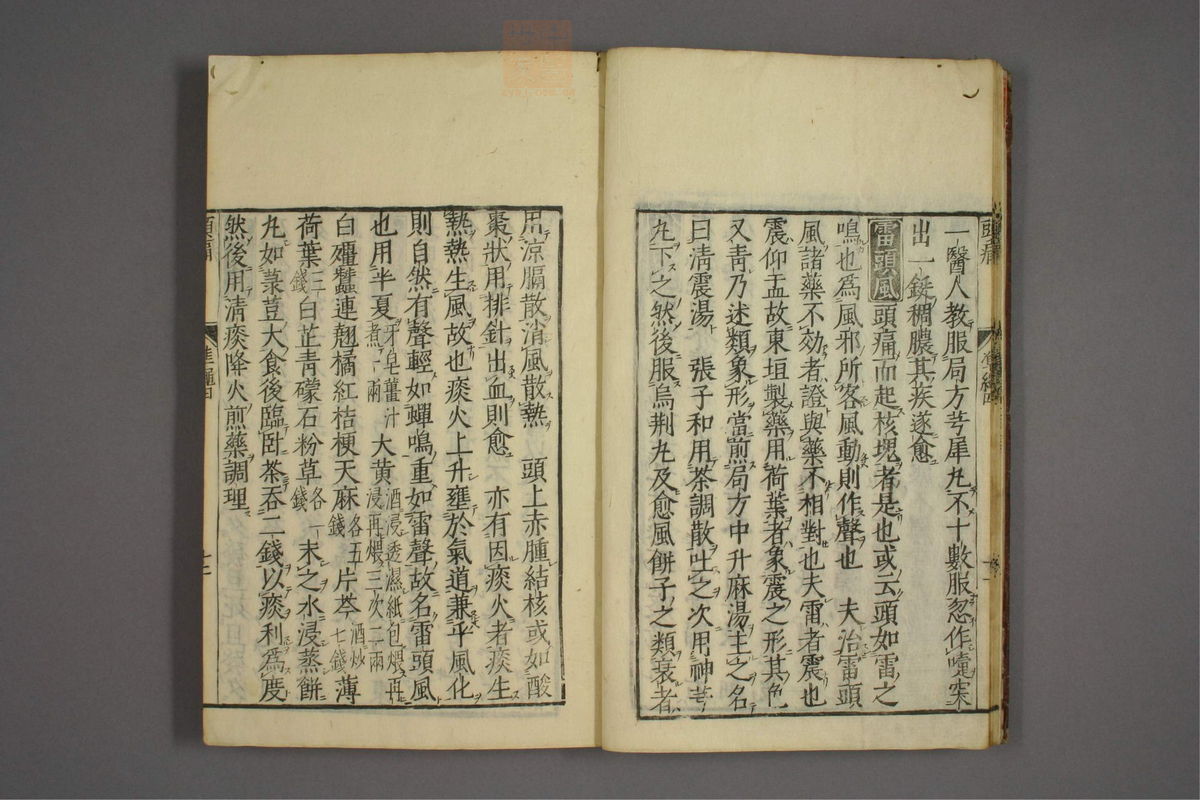 一醫人教服局方芎犀丸不十數服忽作嚏突
出一鋌稠膿其疾遂愈
雷頭風頭痛而起核塊者是也或云頭如雷之
鳴也爲風邪所客風動則作聲也 夫治雷頭
風諸藥不効者證與藥不相對也夫雷者震也
震仰盂故東垣製藥用荷葉者象震之形其色
又青乃述類象形當煎局方中升麻湯主之名
曰清震湯 張子和用茶調散吐之次用神芎
丸下之然後服烏荆丸及愈風餅子之類衰者
用凉膈散消風散熱 頭上赤腫結核或如酸
棗狀用排針出血則愈 亦有因痰火者痰生
熱熱生風故也痰火上升壅於氣道兼乎風化
則自然有聲輕如蟬鳴重如雷聲故名雷頭風
也用半夏牙皂薑汁煮一兩大黃酒浸透濕紙包煨再浸再煨三次二兩
白殭蠶連翹橘紅桔梗天麻各五錢片芩酒炒七錢薄
荷葉三錢白芷青礞石粉草各一錢末之水浸蒸餅
丸如菉荳大食後臨卧茶吞二錢以痰利爲度
然後用清痰降火煎藥調理